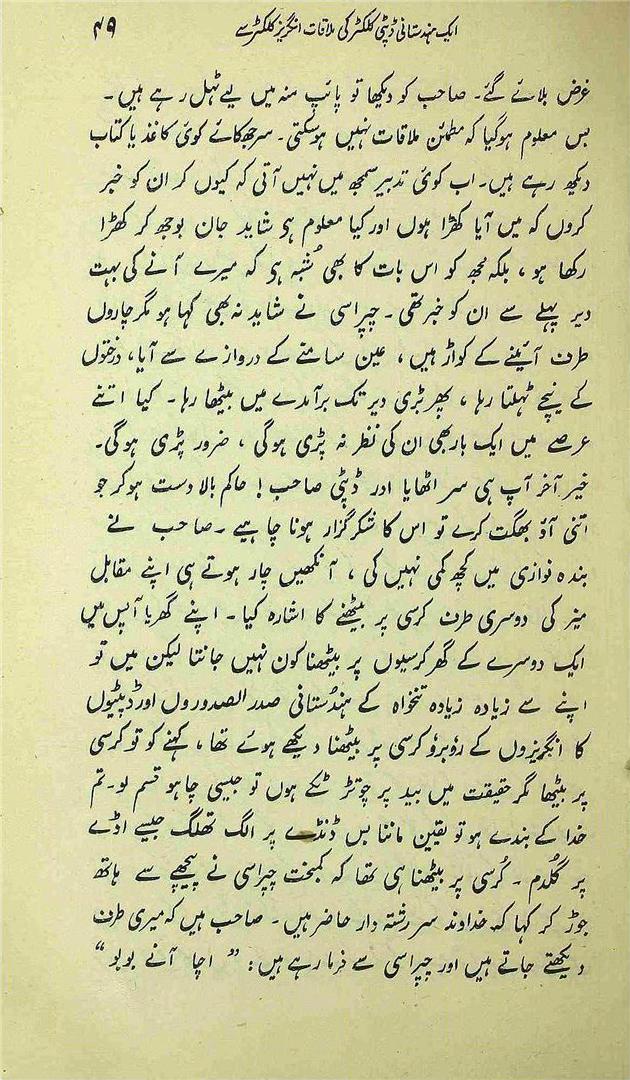 ایک ہندستانی ڈپٹی کلکٹر کی ملاقات انگریز کلکٹر سے ۴۹
غرض بلائے گئے۔ صاحب کو دیکھا تو پائپ منہ میں لیے ٹہل رہے ہیں۔
بس معلوم ہوگیا کہ مطمئن ملاقات نہیں ہوسکتی۔ سرجھکائے کوئی کاغذ یا کتاب
دیکھ رہے ہیں۔ اب کوئی تدبیر سمجھ میں نہیں آتی کہ کیوں کر ان کو خبر
کروں کہ میں آیا کھڑا ہوں اور کیا معلوم ہی شاید جان بوجھ کر کھڑا
رکھا ہو، بلکہ مجھ کو اس بات کا بھی شُبہ ہی کہ میرے آنے کی بہت
دیر پہلے سے ان کو خبر تھی۔ چپراسی نے شاید نہ بھی کہا ہو مگر چاروں
طرف آئینے کے کواڑ ہیں، عین سامنے کے دروازے سے آیا، درختوں
کے نیچے ٹہلتا رہا، پھر بڑی دیر تک برآمدے میں بیٹھا رہا۔ کیا اتنے
عرصے میں ایک بار بھی ان کی نظر نہ پڑی ہوگی، ضرور پڑی ہوگی۔
خیر آخر آپ ہی سر اٹھایا اور ڈپٹی صاحب! حاکم بالادست ہوکر جو
اتنی آؤ بھگت کرے تو اس کا شکرگزار ہونا چاہیے۔ صاحب نے
بندہ نوازی میں کچھ کمی نہیں کی، آنکھیں چار ہوتے ہی اپنے مقابل
میز کی دوسری طرف کرسی پر بیٹھنے کا اشارہ کیا۔ اپنے گھر یا آپس میں
ایک دوسرے کے گھر کرسیوں پر بیٹھنا کون نہیں جانتا لیکن میں تو
اپنے سے زیادہ زیادہ تنخواہ کے ہندُستانی صدر الصدوروں اور ڈپٹیوں
کا انگریزوں کے رؤبرؤ کرسی پر بیٹھنا دیکھے ہوئے تھا، کہنے کو تو کرسی
پر بیٹھا مگر حقیقت میں بید پر چوتڑ ٹکے ہوں تو جیسی چاہو قسم لو۔ تم
خدا کے بندے ہو تو یقین ماننا بس ڈنڈے پر الگ تھلگ جیسے اڈے
پر گلدم۔ کُرسی پر بیٹھنا ہی تھا کہ کمبخت چپراسی نے پیچھے سے ہاتھ
جوڑ کر کہا کہ خداوند سررشتہ دار حاضر ہیں۔ صاحب ہیں کہ میری طرف
دیکھتے جاتے ہیں اور چپراسی سے فرما رہے ہیں: ”اچا آنے بولو“